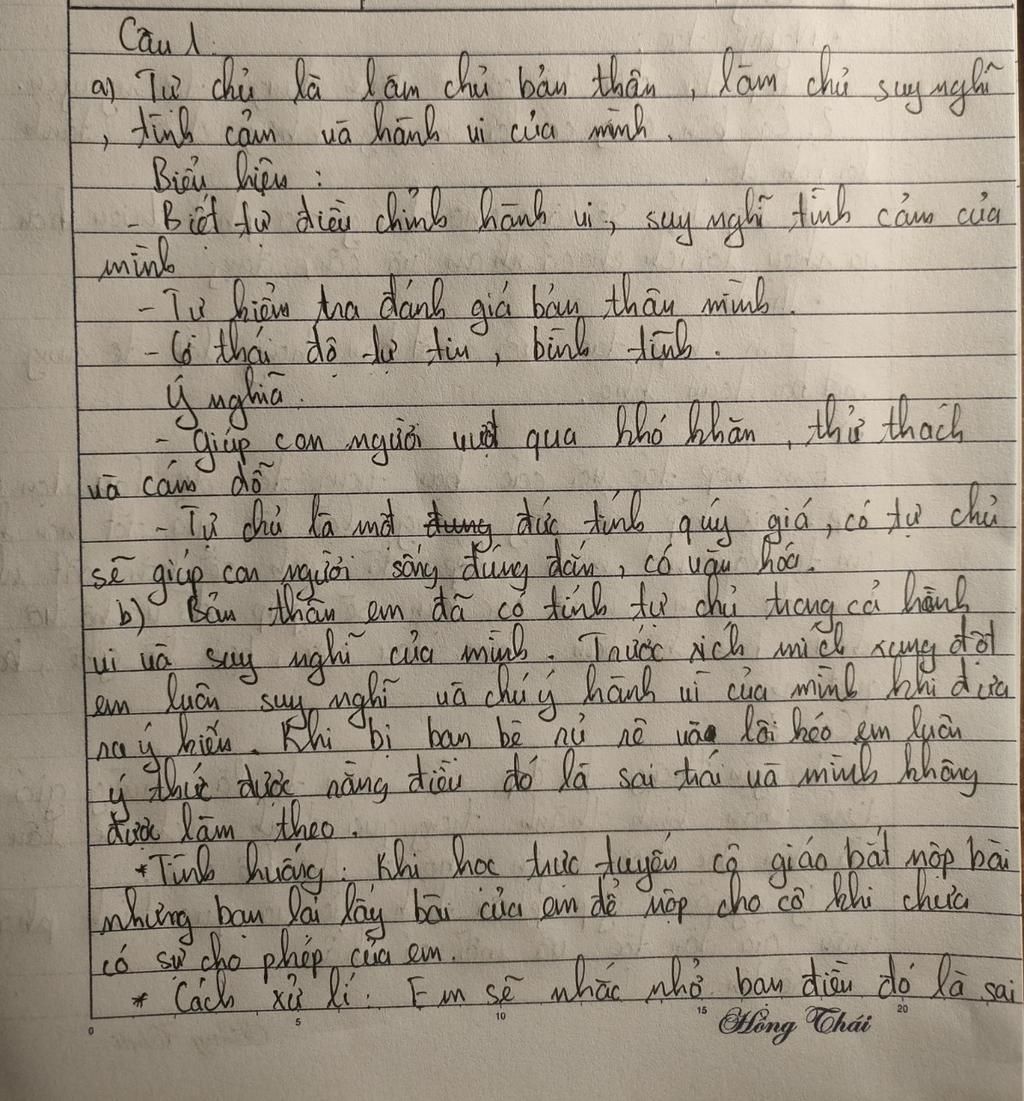 Câu 1.
a) Tự chủ là làm chủ bản thân, làm chủ suy nghĩ
, tình cảm và hành vi của mình.
Biểu hiện :
- Biết tự điều chỉnh hành vi, suy nghĩ tình cảm của
mình
- Tự kiểm tra đánh giá bản thân mình.
- Có thái độ tự tin, bình tĩnh.
Ý nghĩa.
- Giúp con người vượt qua khó khăn, thử thách
và cám dỗ
- Tự chủ là một đung đức tính quý giá, có tự chủ
sẽ giúp con người sống đúng đắn, có văn hóa.
b) Bản thân em đã có tính tự chủ trong cả hành
vi và suy nghĩ của mình. Trước xích mích xung đột
em luôn suy nghĩ và chú ý hành vi của mình khi đưa
ra ý kiến. Khi bị bạn bè rủ rê và lôi kéo em luôn
ý thức được rằng điều đó là sai trái và mình không
được làm theo.
* Tình huống : Khi học trực tuyến cô giáo bắt nộp bài
nhưng bạn lại lấy bài của em để nộp cho cô khi chưa
có sự cho phép của em.
* Cách xử lí : Em sẽ nhắc nhở bạn điều đó là sai
0 5 10 15 20
Hồng Thái